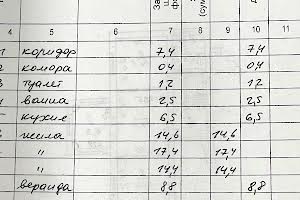 4 5 6 7 8 9 10 11
1 коридор 7,4 7,4
2 комора 0,4 0,4
3 туалет 1,2 1,2
ванна 2,5 2,5
кухня 6,5 6,5
жила 14,6 14,6
" 17,4 17,4
" 14,4 14,4
веранда 8,8 8,8